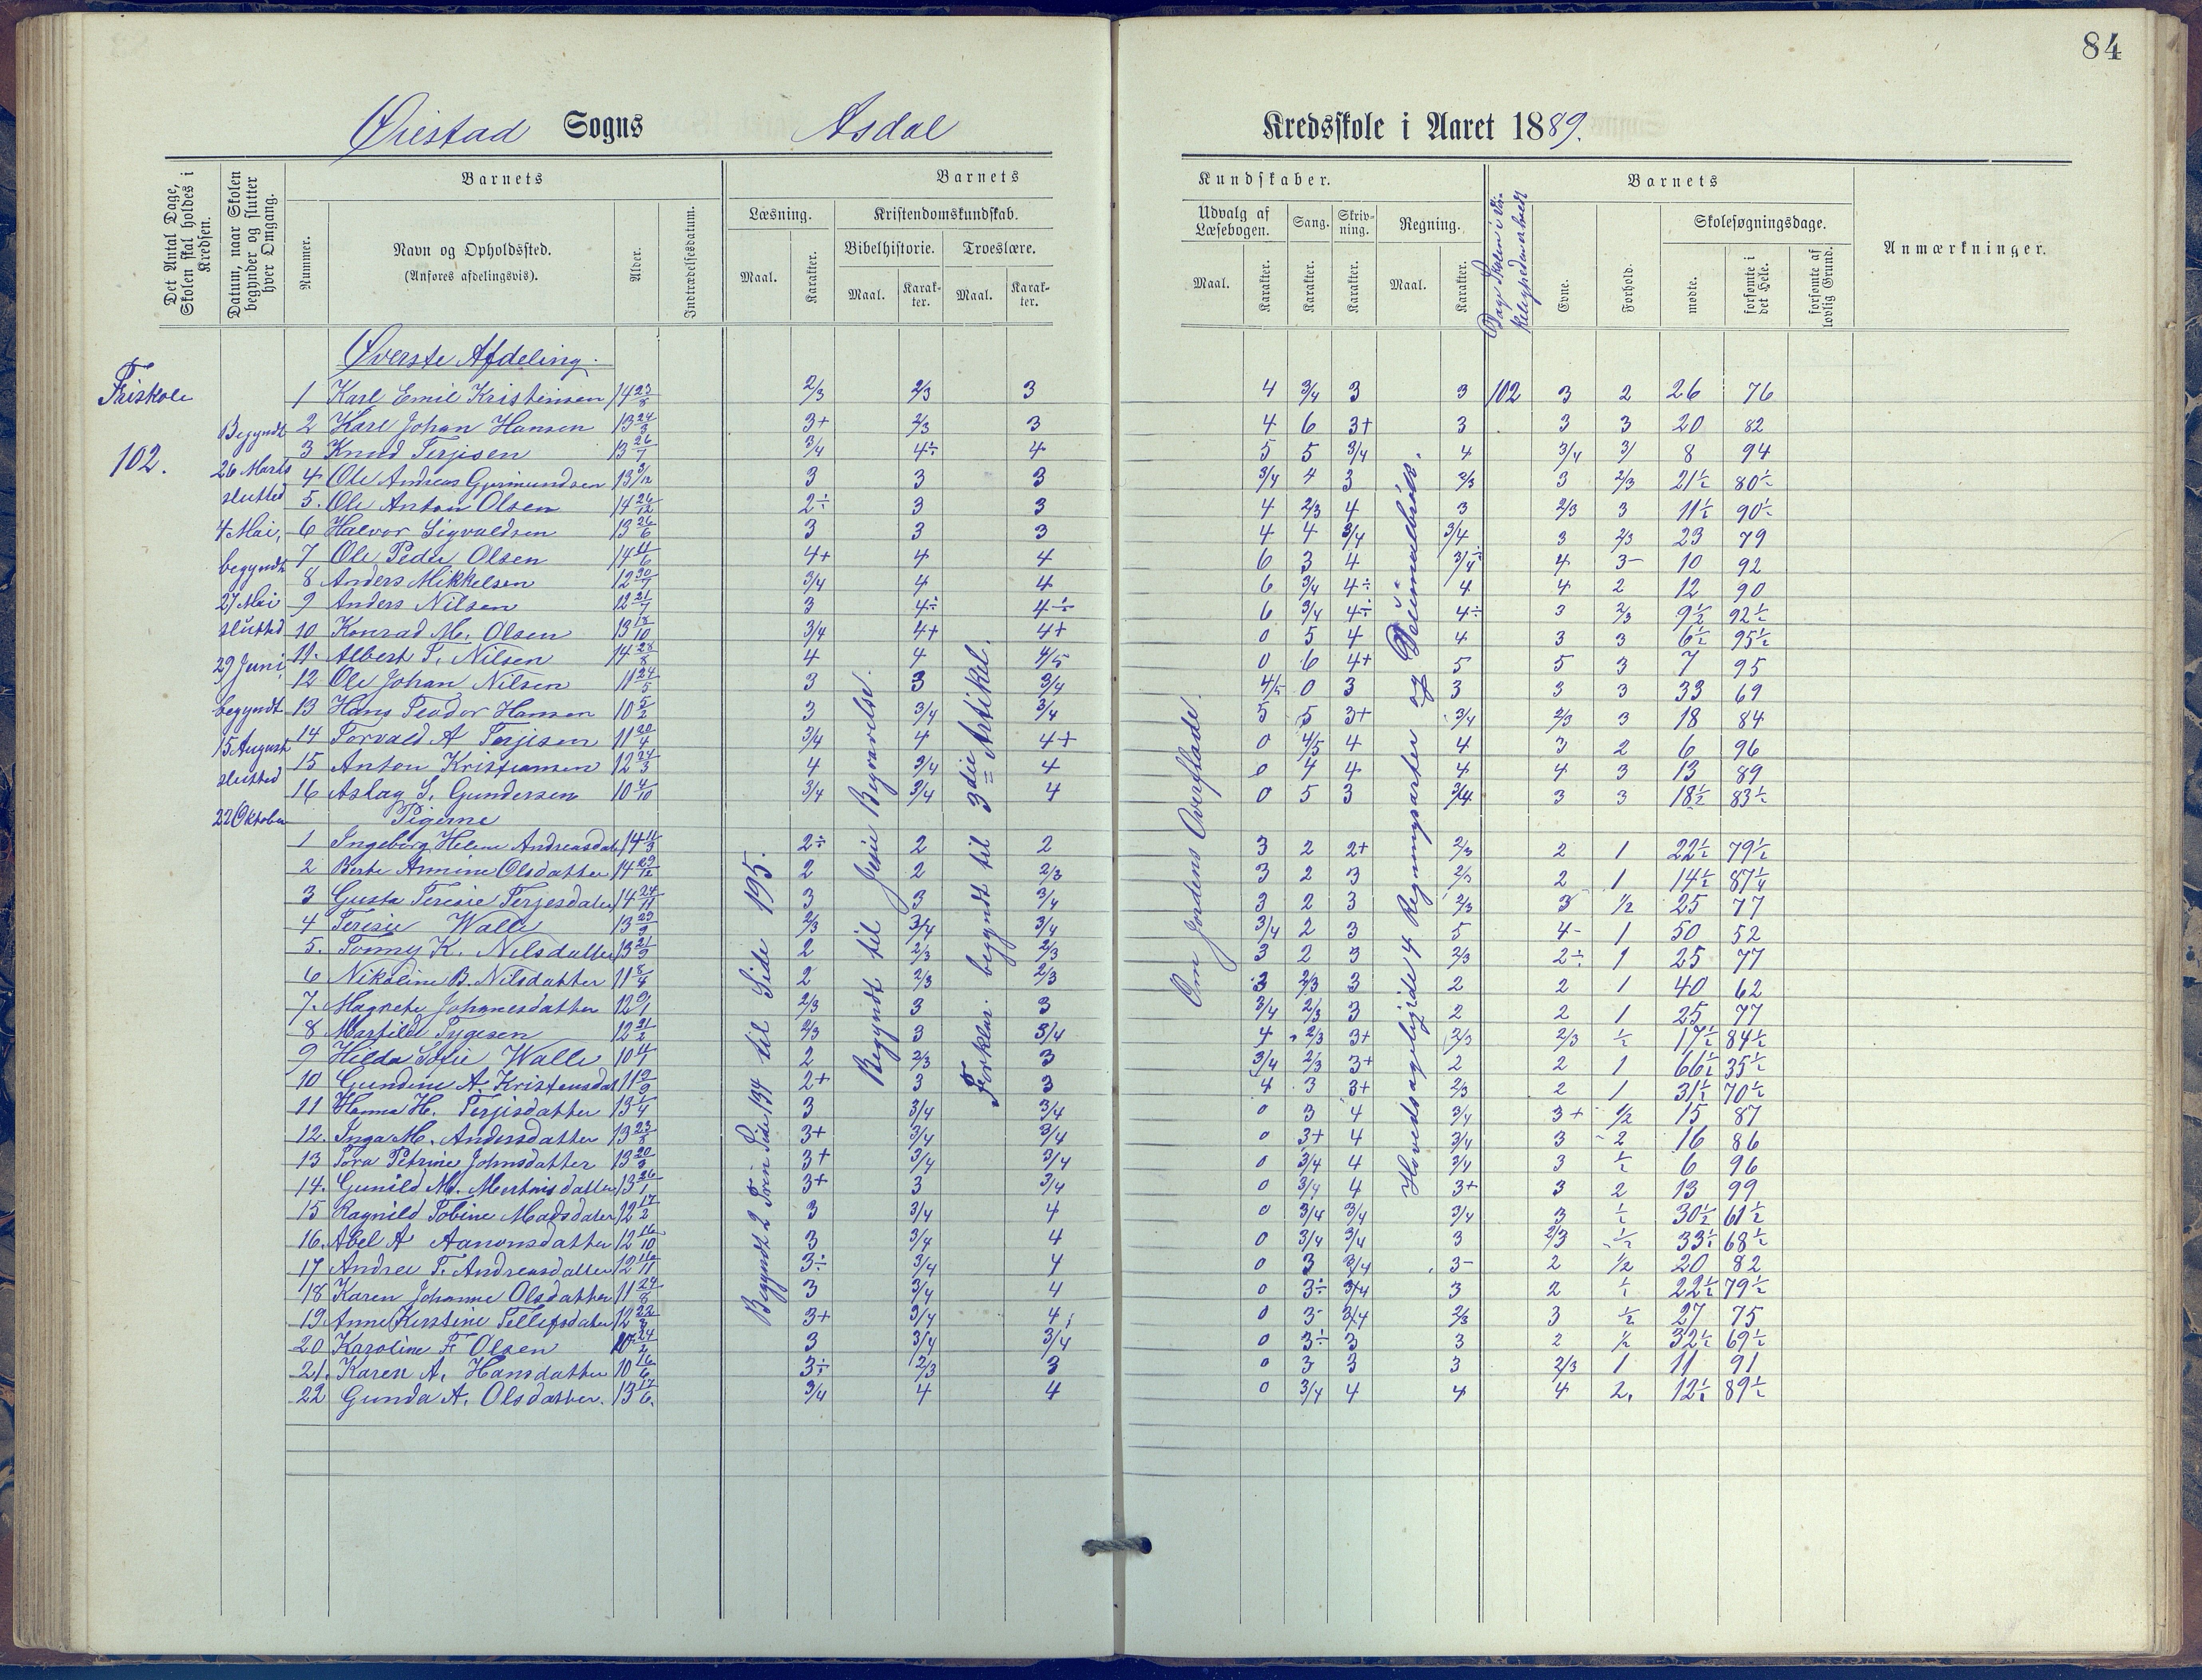 84
Øiestad Sogns Asdal Kredsskole i Aaret 1889.
Det Antal Dage, Skolen skal holdes i Kredsen.
Datum, naar Skolen begynder og slutter hver Omgang.
Barnets
Nummer.
Navn og Opholdssted.
(Anføres afdelingsvis).
Alder.
Indtrædelsesdatum.
Barnets
Læsning.
Maal.
Karakter.
Kristendomskundskab.
Bibelhistorie.
Maal.
Karakter.
Troeslære.
Maal.
Karakter.
Kundskaber.
Udvalg af Læsebogen.
Maal.
Karakter.
Sang.
Karakter.
Skrivning.
Karakter.
Regning.
Maal.
Karakter.
Dage Skolen i
Barnets
Evne.
Forhold.
Skolesøgningsdage.
mødte.
forsømte i det Hele.
forsømte af lovlig Grund.
Anmærkninger.
Friskole
102.
Begyndt
26 Marts
slutted
4 Mai,
begyndt
27 Mai
sluttid
29 Juni,
begyndt
15 August
slutted
22 Oktober
Begyndt 2 Trin Side 134 til Side 195.
Begyndt til Jesu Begravelse.
Forklar. begyndt til 3die Artikel.
Om Jordens Overflade.
Hovedsageligide 4 Regningsarter og Decimalbrøk.
Øverste Afdeling.
1 Karl Emil Kristensen 14 23/8 2/3 2/3 3 4 3/4 3 3 102 3 2 26 76
2 Karl Johan Hansen 13 24/3 3+ 2/3 3 4 6 3+ 3 3 3 20 82
3 Knud Terjesen 13 26/7 3/4 4÷ 4 5 5 3/4 4 3/4 3/ 8 94
4 Ole Andreas 13 3/12 3 3 3 3/4 4 3 2/3 3 2/3 21½ 80½
5. Ole Anton Olsen 14 26/12 2÷ 3 3 4 2/3 4 3 2/3 3 11½ 90½
6 Halvor Sigvaldsen 13 26/6 3 3 3 4 4 3/4 3/4 3 2/3 23 79
7 Ole Peder Olsen 14 4/6 4+ 4 4 6 3 4 3/4÷ 4 3- 10 92
8 Anders Mikkelsen 12 30/7 3/4 4 4 6 3/4 4÷ 4 4 2 12 90
9 Anders Nilsen 12 21/7 3 4÷ 4÷ 6 3/4 4÷ 4÷ 3 2/3 9½ 92½
10 Konrad M. Olsen 13 18/10 3/4 4+ 4+ 0 5 4 4 3 3 6½ 95½
11. Albert T. Nilsen 14 28/8 4 4 4/5 0 6 4+ 5 5 3 7 95
12 Ole Johan Nilsen 11 24/5 3 3 3/4 4/5 0 3 3 3 3 33 69
13 Hans Teodor Hansen 10 5/2 3 3/4 3/4 5 5 3+ 3/4 2/3 3 18 84
14 Torvald A Terjesen 11 20/4 3/4 4 4+ 0 4/5 4 4 3 2 6 96
15 Anton Kristiansen 12 24/3 4 3/4 4 0 4 4 4 4 3 13 89
16 Aslag S. Gundersen 10 4/10 3/4 3/4 4 0 5 3 3/4 3 3 18½ 83½
Pigerne
1 Ingeborg Helene Andreasdat 14 11/3 2÷ 2 2 3 2 2+ 2/3 2 1 22½ 79½
2 Berte Annine Olsdatter 14 29/12 2 2 2/3 3 2 3 2/3 2 1 14½ 87½
3 Gusta Teresie Terjesdater 14 24/11 3 3 3/4 3 2 3 2/3 3 1/2 25 77
4 Teresie Walle 13 29/9 2/3 3/4 3/4 3/4 2 3 5 4- 1 50 52
5. Tonny K. Nilsdatter 13 21/9 2 2/3 2/3 3 2 3 2/3 2÷ 1 25 77
6 Nikoline B. Nilsdatter 11 8/4 2 2/3 2/3 3 2/3 3 2 2 1 40 62
7. Magrete Johanesdatter 12 9/1 2/3 3 3 3/4 2/3 3 2 2 1 25 77
8 Martilde Tygesen 12 21/2 2/3 3 3/4 4 2/3 3+ 2/3 2/3 ½ 17½ 84½
9 Hilda Sofie Walle 10 4/1 2 2/3 3 3/4 2/3 3+ 2 2 1 66½ 35½
10 Gundine A. Kristensdat 11 9/9 2+ 3 3 4 3 3+ 2/3 2 1 31½ 70½
11 Hanna H. Terjisdatter 13 1/4 3 3/4 3/4 0 3 4 3/4 3+ 1/2 15 87
12. Inga M. Andersdatter 13 23/8 3+ 3/4 3/4 0 3+ 4 3/4 3 2 16 86
13 Tora Petrine Johnsdatter 13 20/9 3+ 3/4 3/4 0 3/4 4 3/4 3 ½ 6 96
14. Gunild M. datter 13 26/1 3+ 3 3/4 0 3/4 4 3+ 3 2 13 99
15 Ragnild Tobine Madsdater 12 17/2 3 3/4 4 0 3/4 3/4 3/4 3 ½ 30½ 61½
16. Abel A Aanonsdatter 12 16/10 3 3/4 4 0 3/4 3/4 3 2/3 ½ 33½ 68½
17 Andrea T. Andreasdatter 12 16/11 3÷ 3/4 4 0 3 3/4 3- 2 1/2 20 82
18 Karen Johanne Olsdatter 11 24/8 3 3/4 4 0 3÷ 3/4 3 2 ½ 22½ 79½
19 Anne Kirstine Tellefsdater 12 22/8 3+ 3/4 4 0 3- 3/4 2/3 3 ½ 27 75
20 Karoline F Olsen 10 24/2 3 3/4 3/4 0 3÷ 3 3 2 ½ 32½ 69½
21. Karen A. Hansdatter 10 16/6 3÷ 2/3 3 0 3 3 3 2/3 1 11 91
22 Gunda A. Olsdatter. 13 17/6. 3/4 4 4 0 3/4 4 4 4 2. 12½ 89½